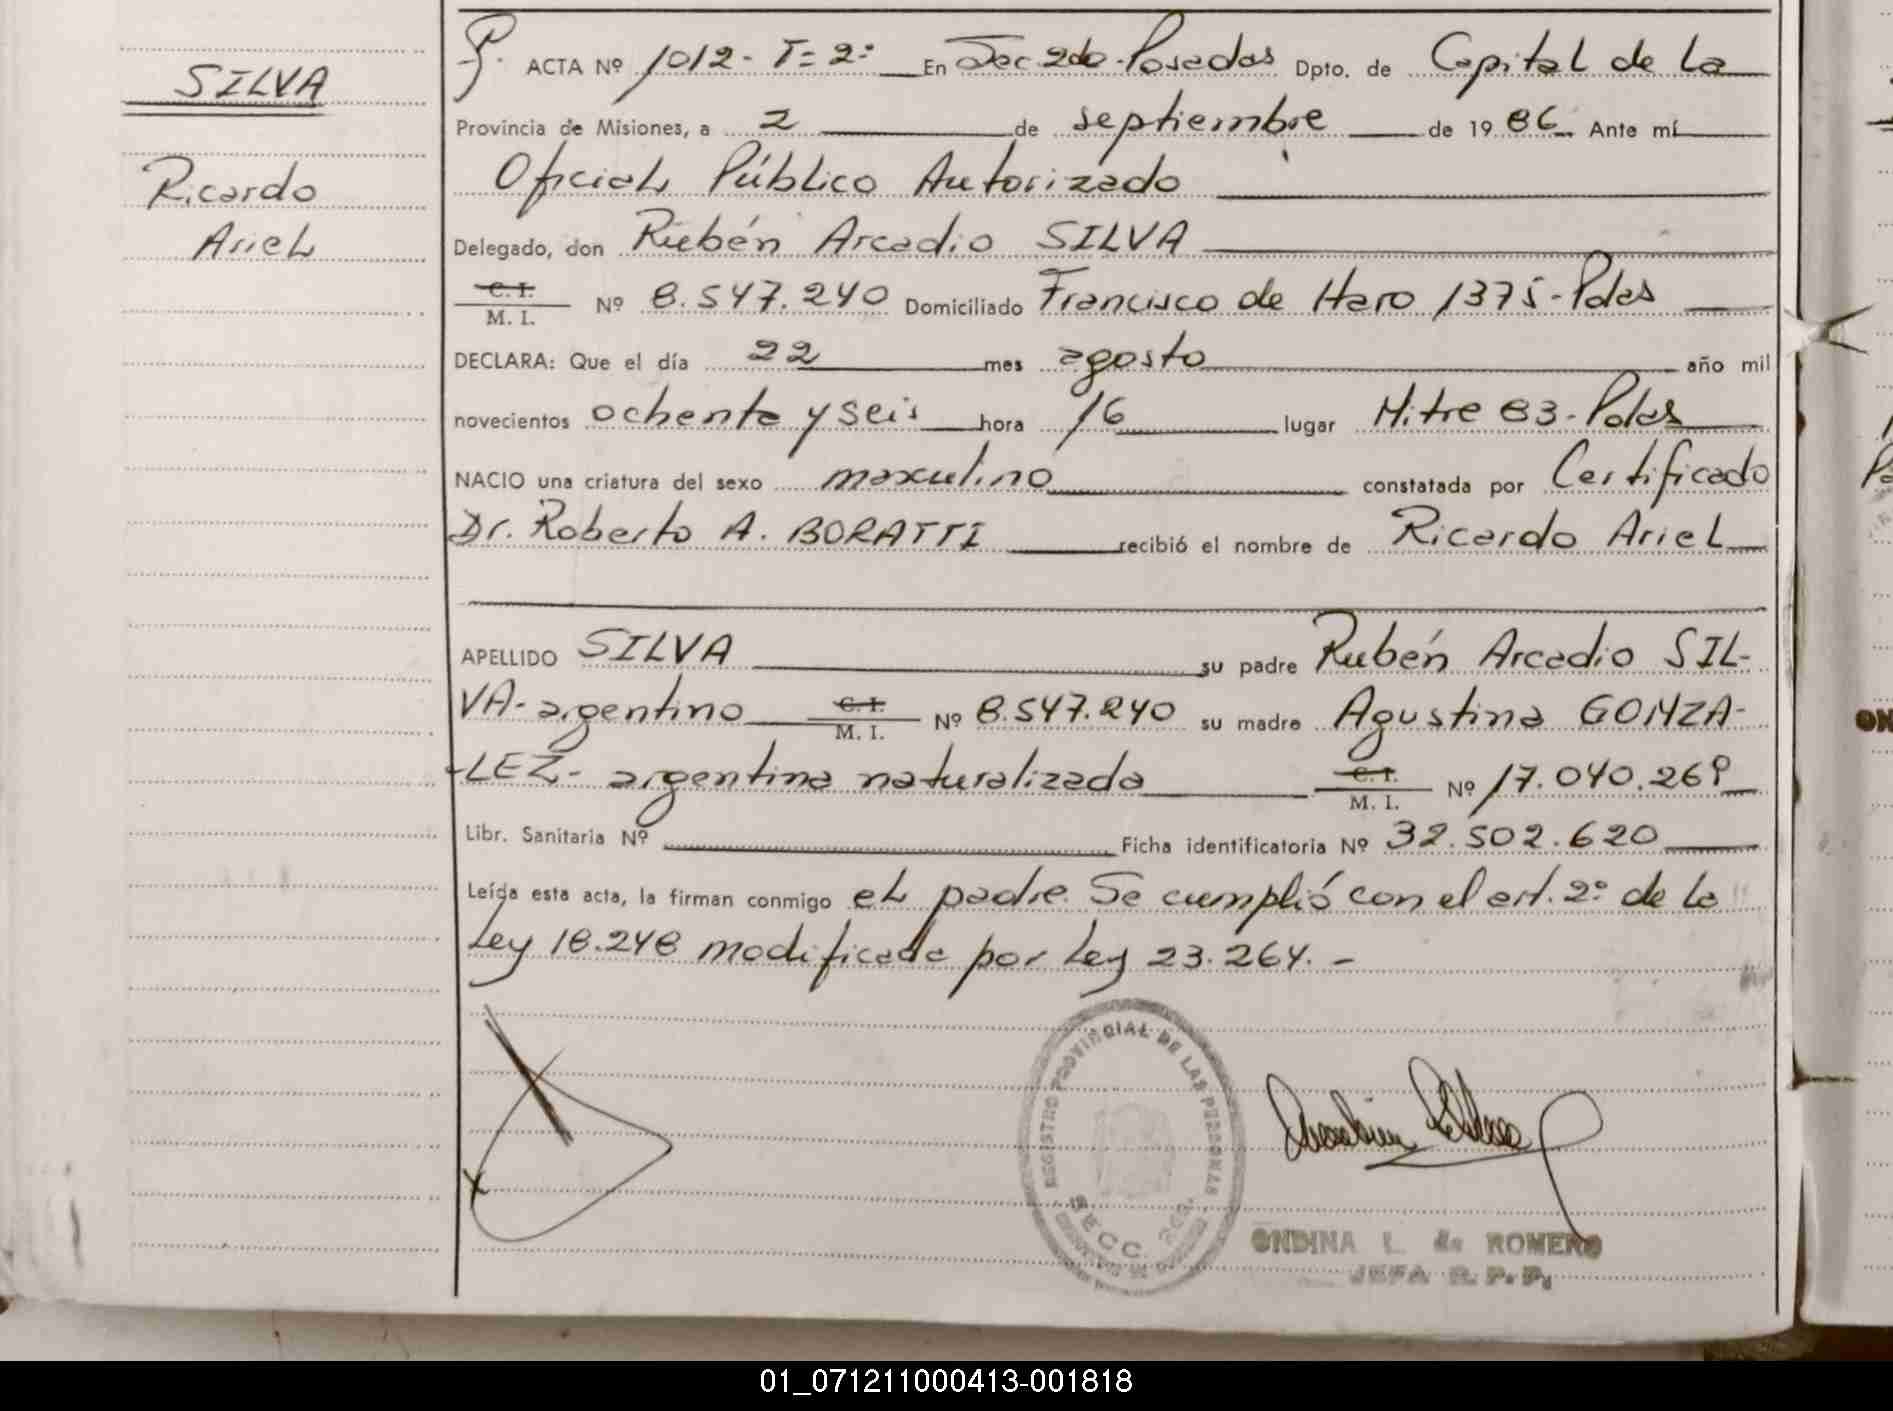 SILVA
Ricardo
Ariel
ACTA Nº 1012- T= 2º En Sec 2do Posadas Dpto. de Capital de La
Provincia de Misiones, a 2 de septiembre de 19 86 Ante mí
Oficial Público Autorizado
Delegado, don Rubén Arcadio SILVA
C. I. M. I. Nº 8.547.240 Domiciliado Francisco de Haro 1375-Pdas
DECLARA: Que el día 22 mes agosto año mil
novecientos ochenta y seis hora 16 lugar Mitre 83-Pdas
NACIO una criatura del sexo masculino constatada por Certificado
Dr. Roberto A. BORATTI recibió el nombre de Ricardo Ariel
APELLIDO SILVA su padre Rubén Arcadio SIL-
VA- argentino C. I. M. I. Nº 8.547.240 su madre Agustina GONZA-
-LEZ- argentina naturalizada C. I. M. I. Nº 17.040.269
Libr. Sanitaria Nº Ficha identificatoria Nº 32.502.620
Leída esta acta, la firman conmigo el padre. Se cumplió con el art. 2º de la
Ley 18.248 modificada por Ley 23.264. -
REGISTRO PROVINCIAL DE LAS PERSONAS
SECC. 2da.
ONDINA L. de ROMERO
JEFA R. P. P.
01_071211000413-001818